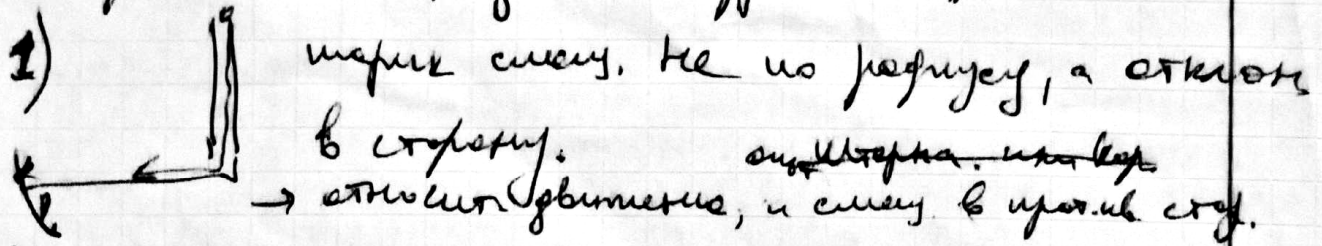 1) шарик смещ. не по радиусу, а отклон.
в сторону.
→ относит. движения, и смещ в против. стор.